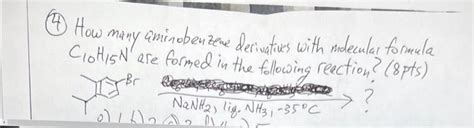 ④ How many aminobenzene derivatives with molecular formula
C10H15N are formed in the following reaction? (8pts)
Br
NaNH2, liq. NH3, -35°C
?